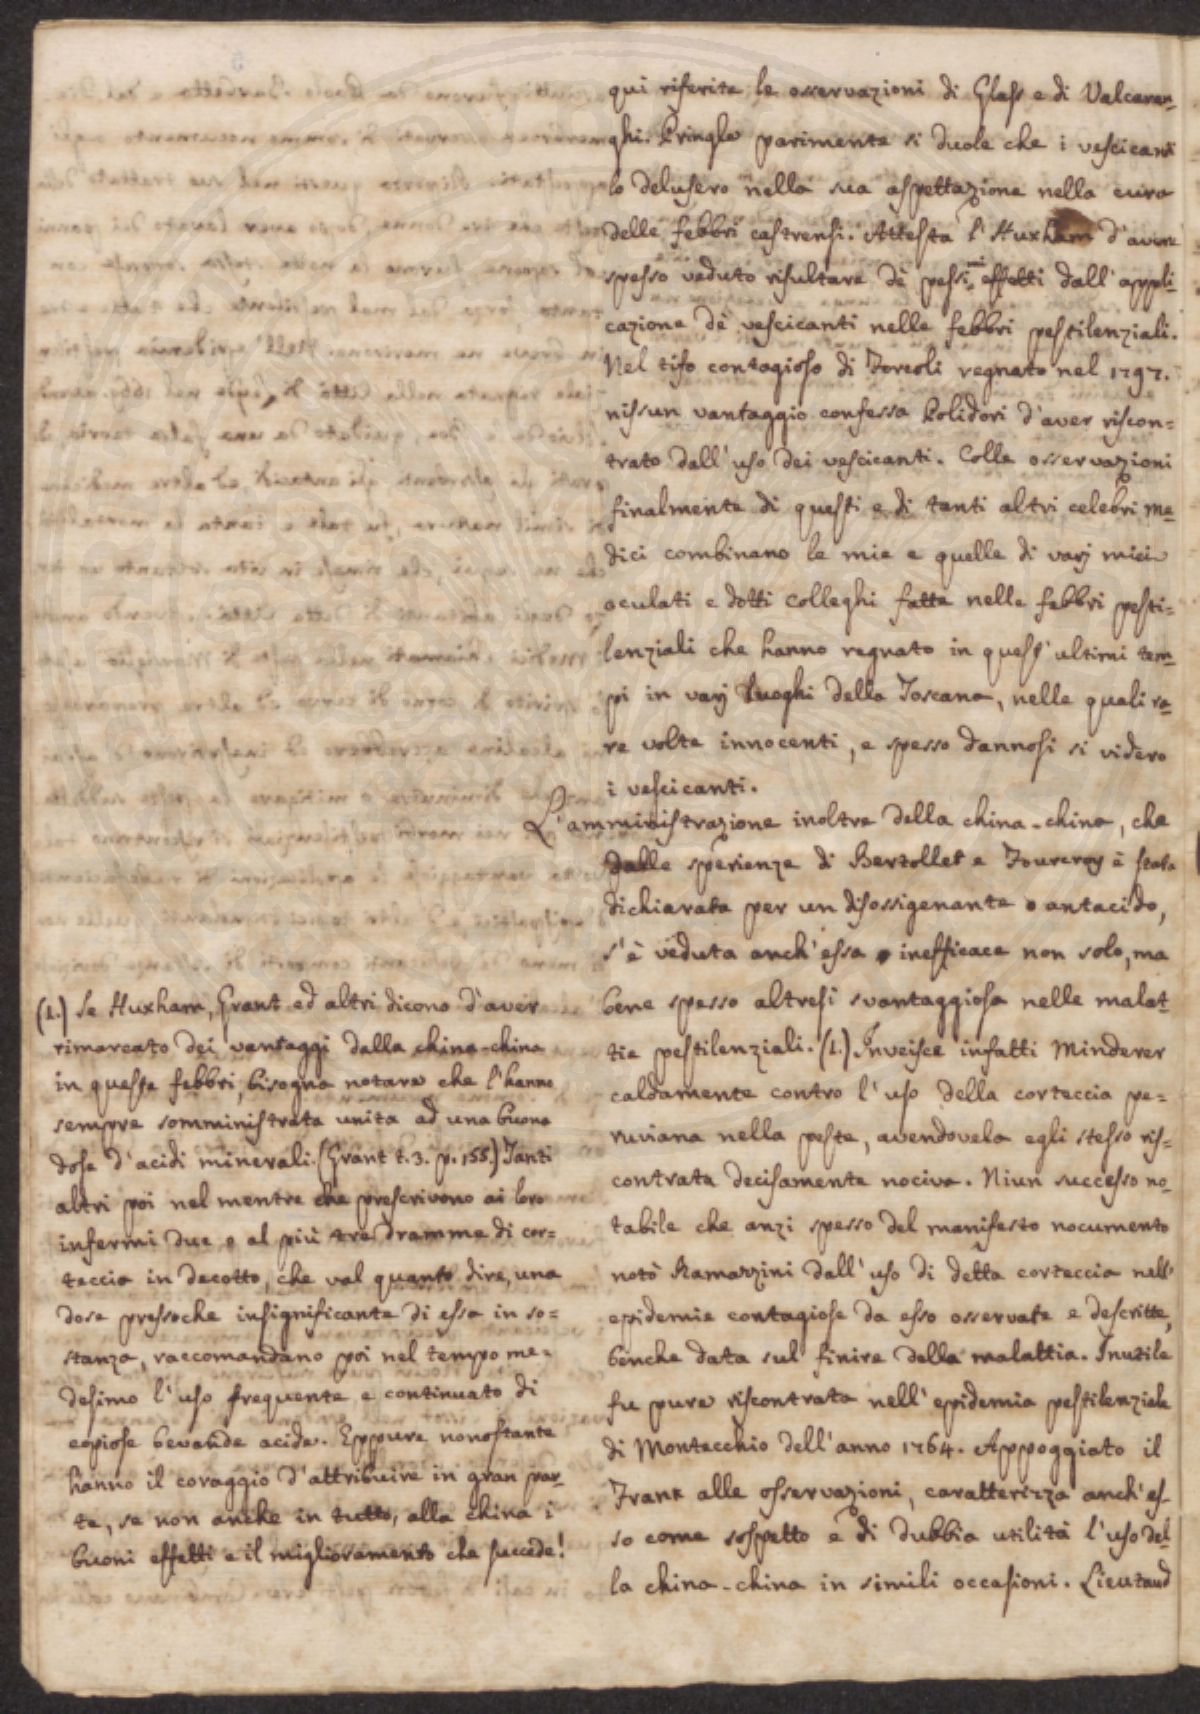 qui riferite le osservazioni di Glass e di Valcaren-
ghi. Pringle parimente si duole che i vescicanti
lo delusero nella sua aspettazione nella cura
delle febbri castrensi. Attesta l'Huxham d'avere
spesso veduto risultare de' pessimi effetti dall'appli-
cazione de' vescicanti nelle febbri pestilenziali.
Nel tifo contagioso di Forcoli regnato nel 1797.
nissun vantaggio confessa Polidori d'aver riscon=
trato dall'uso dei vescicanti. Colle osservazioni
finalmente di questi e di tanti altri celebri me-
dici combinano le mie e quelle di varj miei
oculati e dotti colleghi fatte nelle febbri pesti=
lenziali che hanno regnato in quest'ultimi tem-
pi in varj luoghi della Toscana, nelle quali ra-
re volte innocenti, e spesso dannosi si videro
i vescicanti.
L'amministrazione inoltre della china-china, che
dalle sperienze di Bertollet e Fourcroy è stata
dichiarata per un disossigenante o antacido,
s'è veduta anch'essa inefficace non solo, ma
bene spesso altresì svantaggiosa nelle malat-
tie pestilenziali. (1.) Inveisce infatti Minderer
caldamente contro l'uso della corteccia pe=
ruviana nella peste, avendovela egli stesso ris=
contrata decisamente nociva. Niun successo no-
tabile che anzi spesso del manifesto nocumento
notò Ramazzini dall'uso di detta corteccia nell'
epidemie contagiose da esso osservate e descritte,
benche data sul finire della malattia. Inutile
fu pure riscontrata nell'epidemia pestilenziale
di Montecchio dell'anno 1764. Appoggiato il
Frank alle osservazioni, caratterizza anch'es-
so come sospetto e di dubbia utilità l'uso del-
la china-china in simili occasioni. Lieutaud
(1.) Se Huxham, Grant ed altri dicono d'aver
rimarcato dei vantaggi dalla china-china
in queste febbri, bisogna notare che l'hanno
sempre somministrata unita ad una buona
dose d'acidi minerali. (Grant t. 3. p. 155.) Tanti
altri poi nel mentre che prescrivono ai loro
infermi due o al più tre dramme di cor=
teccia in decotto, che val quanto dire, una
dose pressoche insignificante di essa in so=
stanza, raccomandano poi nel tempo me=
desimo l'uso frequente e continuato di
copiose bevande acide. Eppure nonostante
hanno il coraggio d'attribuire in gran par-
te, se non anche in tutto, alla china i
buoni effetti e il miglioramento che succede!